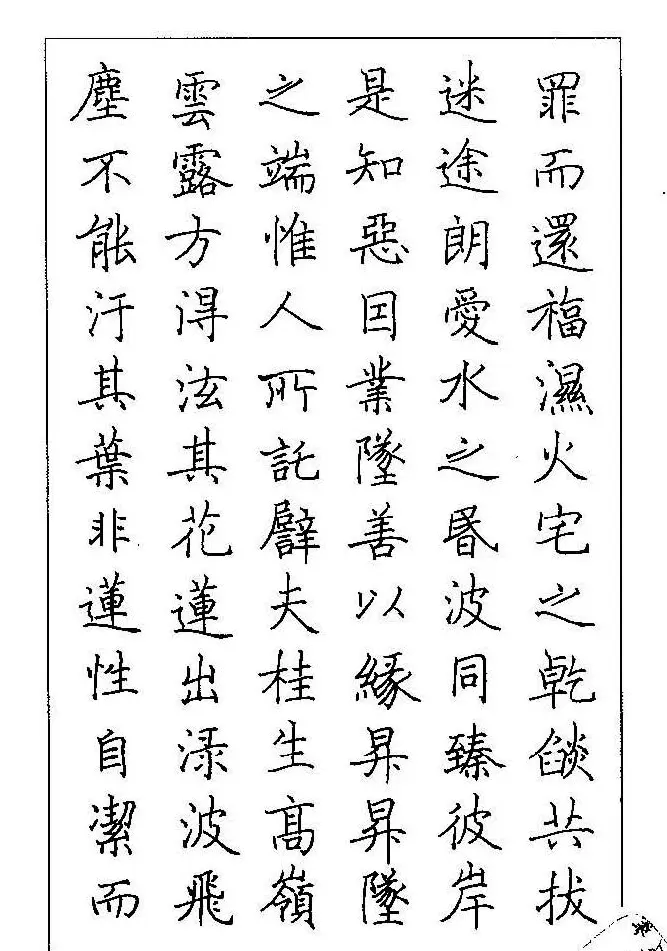 罪而還福濕火宅之乾燄共拔
迷途朗愛水之昏波同臻彼岸
是知惡因業墜善以緣昇昇墜
之端惟人所託譬夫桂生高嶺
雲露方得泫其花蓮出渌波飛
塵不能汙其葉非蓮性自潔而